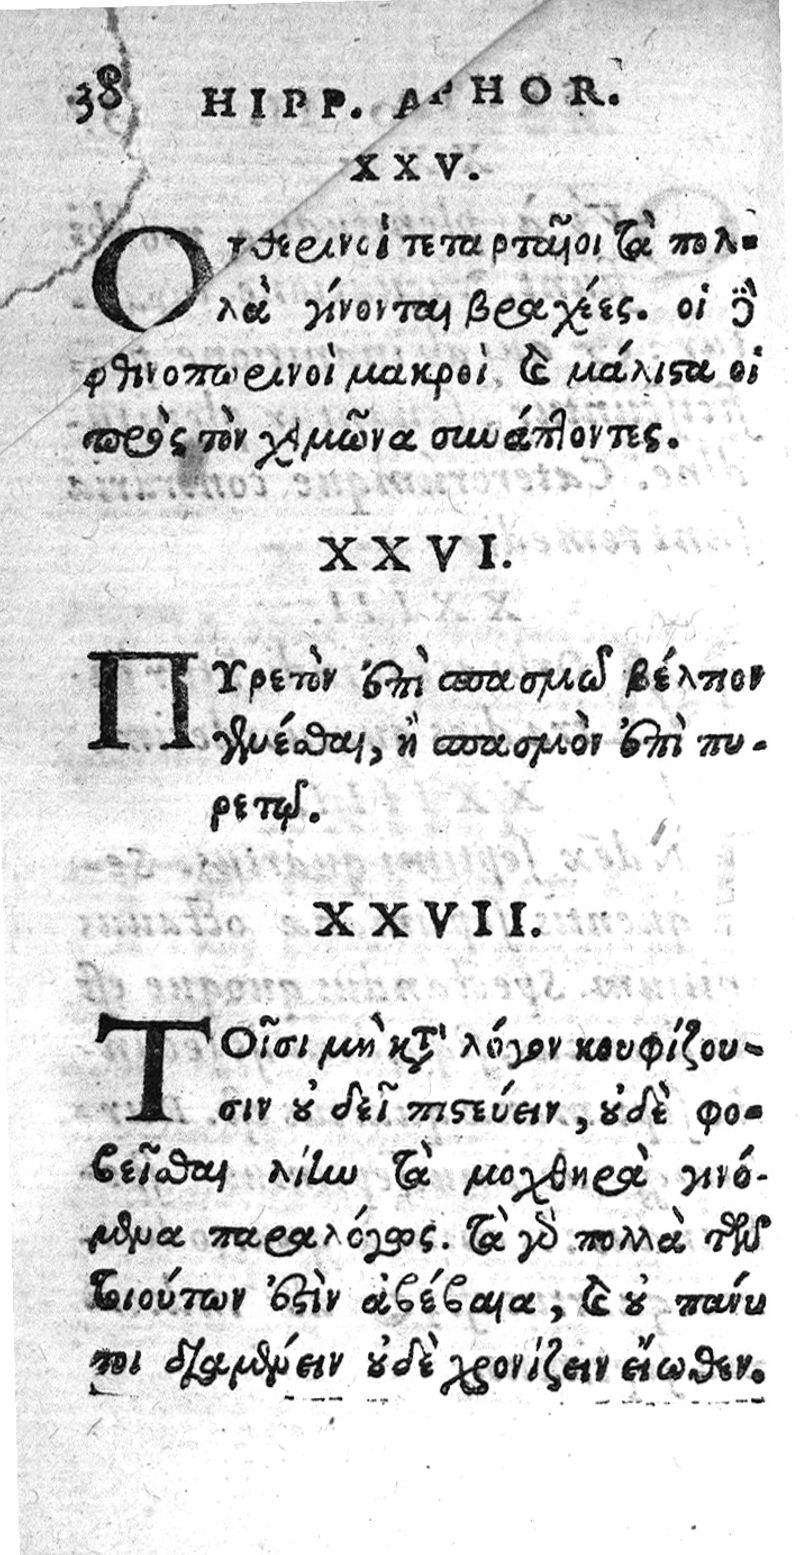 38 HIPP. APHOR.
XXV.
Οἱ θερινοὶ τεταρταῖοι τὰ πολ-
λὰ γίνονται βραχέες. οἱ δὲ
φθινοπωρινοὶ μακροὶ, καὶ μάλιστα οἱ
πρὸς τὸν χειμῶνα συνάπτοντες.
XXVI.
Πυρετὸν ἐπὶ σπασμῷ βέλτιον
γενέσθαι, ἢ σπασμὸν ἐπὶ πυ-
ρετῷ.
XXVII.
Τοῖσι μὴ κατὰ λόγον κουφίζου-
σιν οὐ δεῖ πιστεύειν, οὐδὲ φο-
βεῖσθαι λίην τὰ μοχθηρὰ γινό-
μενα παραλόγως. τὰ γὰρ πολλὰ τῶν
τοιούτων ἐστὶν ἀβέβαια, καὶ οὐ πάνυ
τοι διαμένειν οὐδὲ χρονίζειν εἴωθεν.